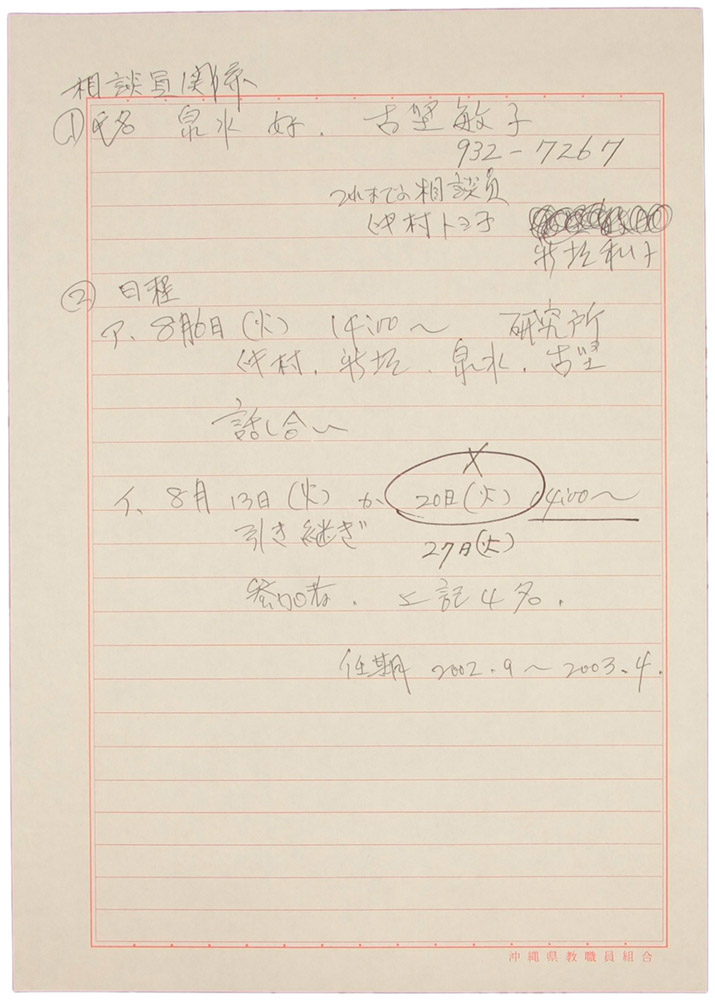 相談員関係
① 氏名 泉水 好. 古堅敏子
932-7267
これまでの相談員
仲村トヨ子
新垣和子
② 日程
ア. 8月6日(火) 14:00〜 研究所
仲村. 新垣. 泉水. 古堅
話し合い
イ. 8月13日(火) か 20日(火) 14:00〜
引き継ぎ 27日(火)
参加者. 上記4名.
任期 2002.9〜2003.4.
沖縄県教職員組合